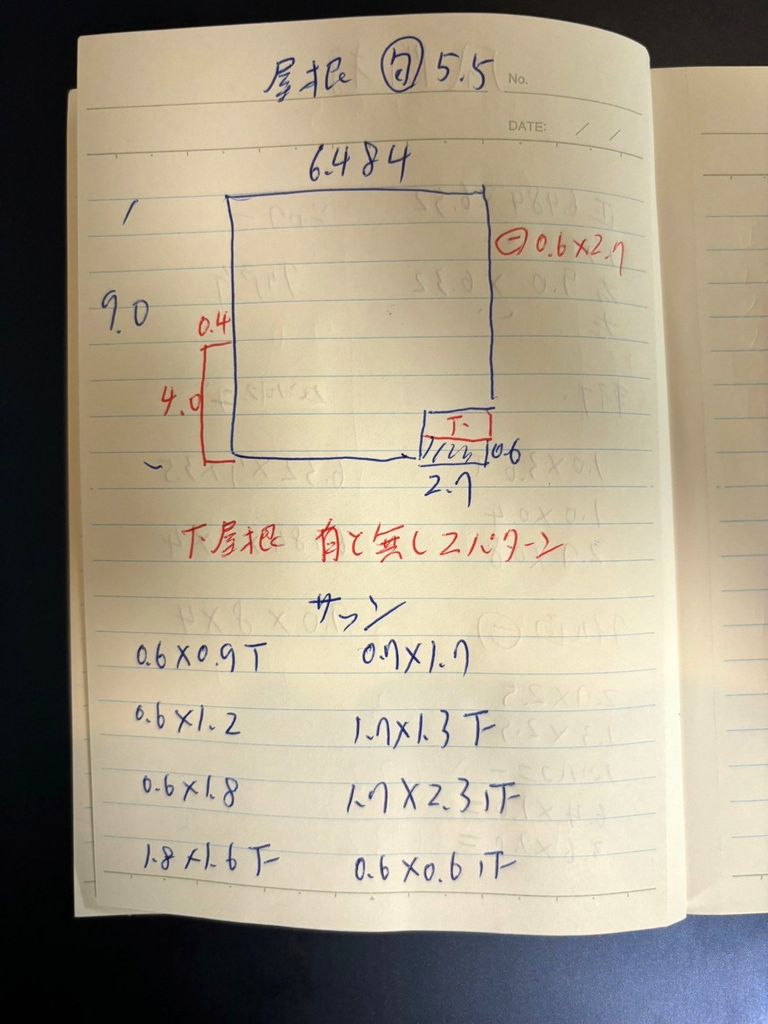 屋根 勾 5.5
No.
DATE: / /
6.484
㊀ 0.6×2.7
9.0
0.4
4.0
下
0.6
2.7
下屋根 有と無し2パターン
サッシ
0.6×0.9 下 0.7×1.7
0.6×1.2 1.7×1.3 下
0.6×1.8 1.7×2.3 1下
1.8×1.6 下 0.6×0.6 1下